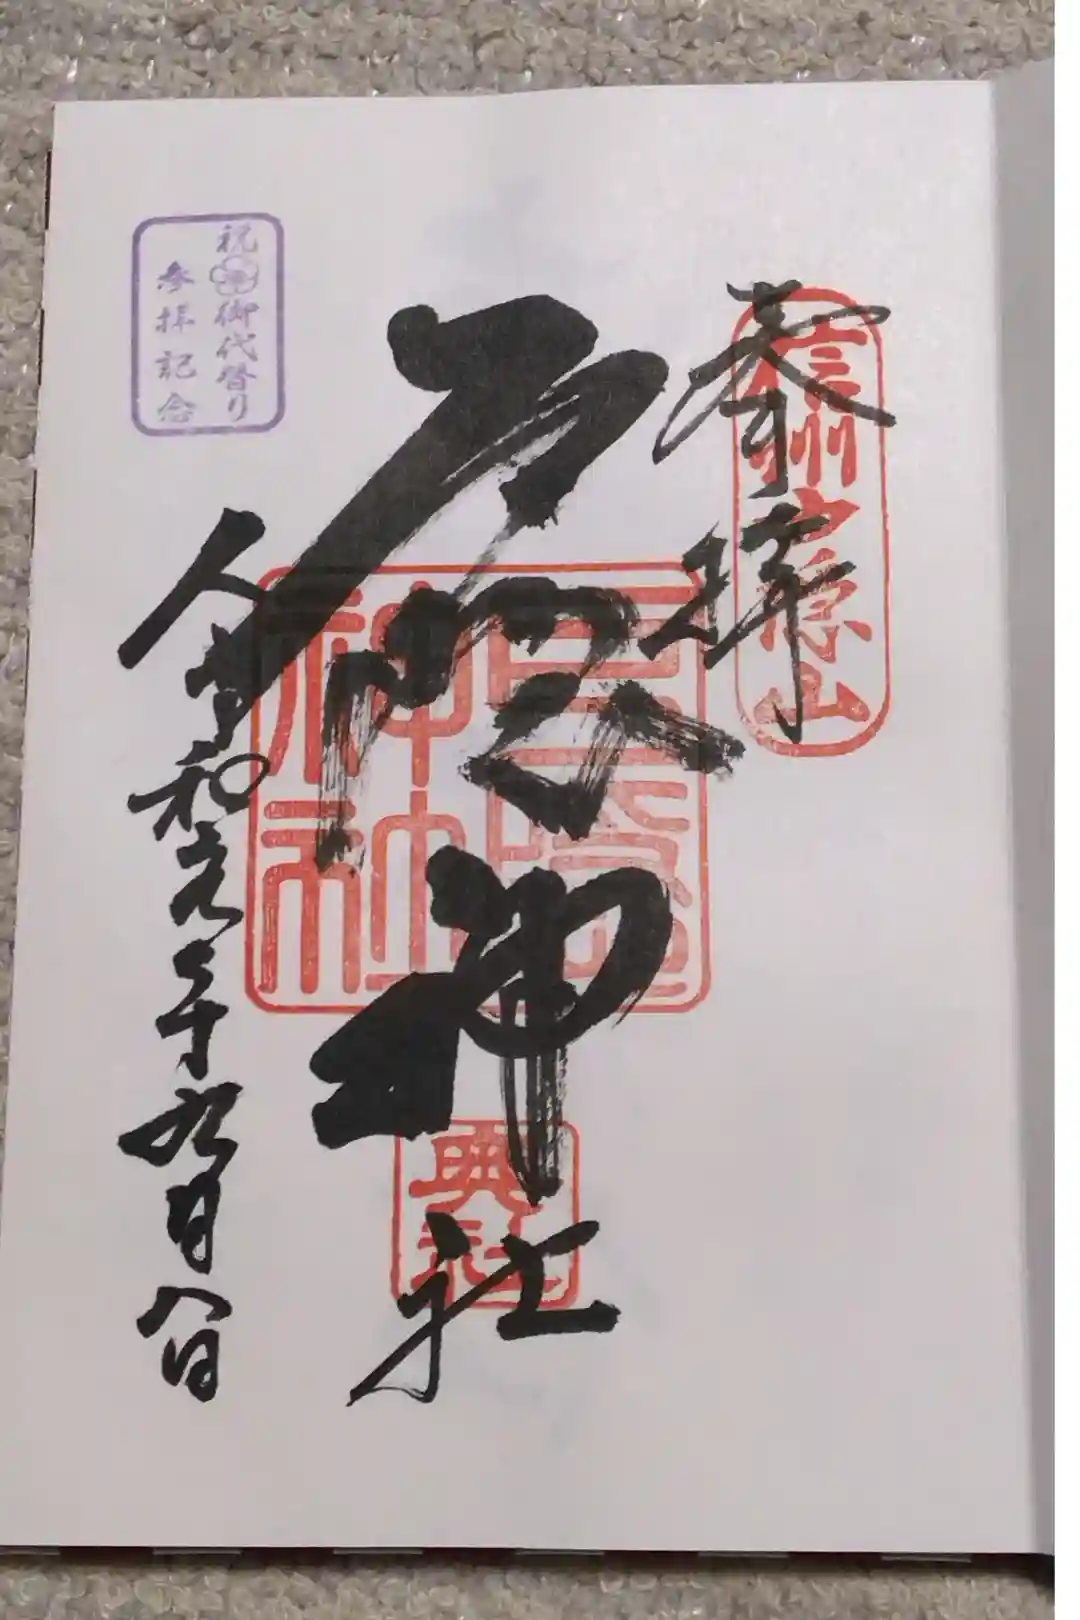 奉拝
信州戸隠山
戸隠神社
戸隠神社
奥社
令和元年九月八日
祝 御代替り
参拝記念